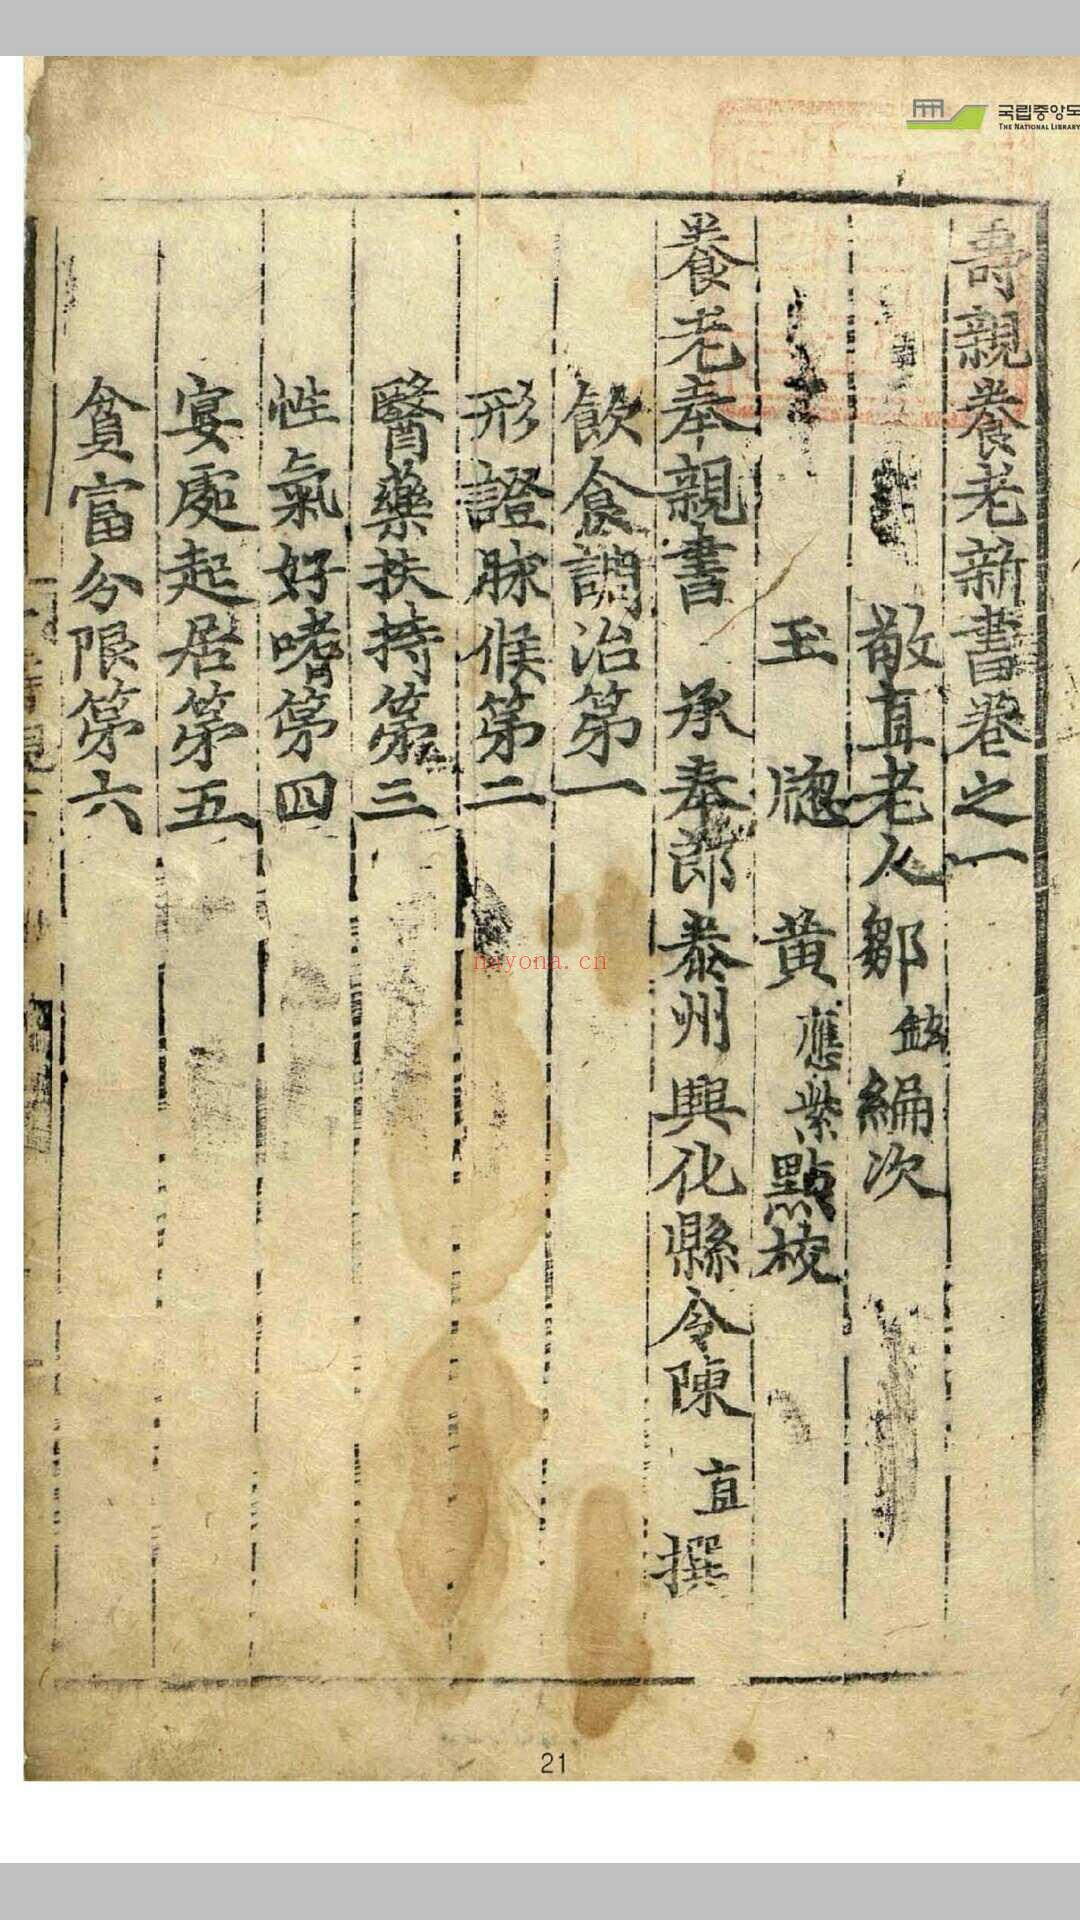 壽親養老新書卷之一
敬直老人鄒鉉編次
玉牕黃應紫點校
養老奉親書 承奉郎泰州興化縣令陳直撰
飲食調治第一
形證脉候第二
醫藥扶持第三
性氣好嗜第四
宴處起居第五
貧富分限第六
국립중앙도
THE NATIONAL LIBRARY
nayona.cn
21